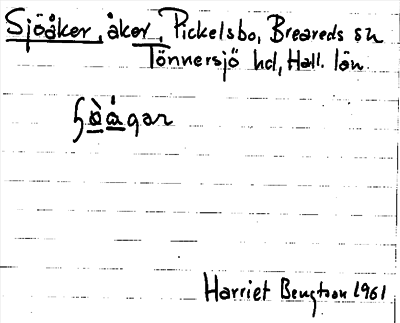 Sjöåker, åker, Pickelsbo, Breareds sn
Tönnersjö hd, Hall. län.
ʃö̀ågar
Harriet Bengtson 1961